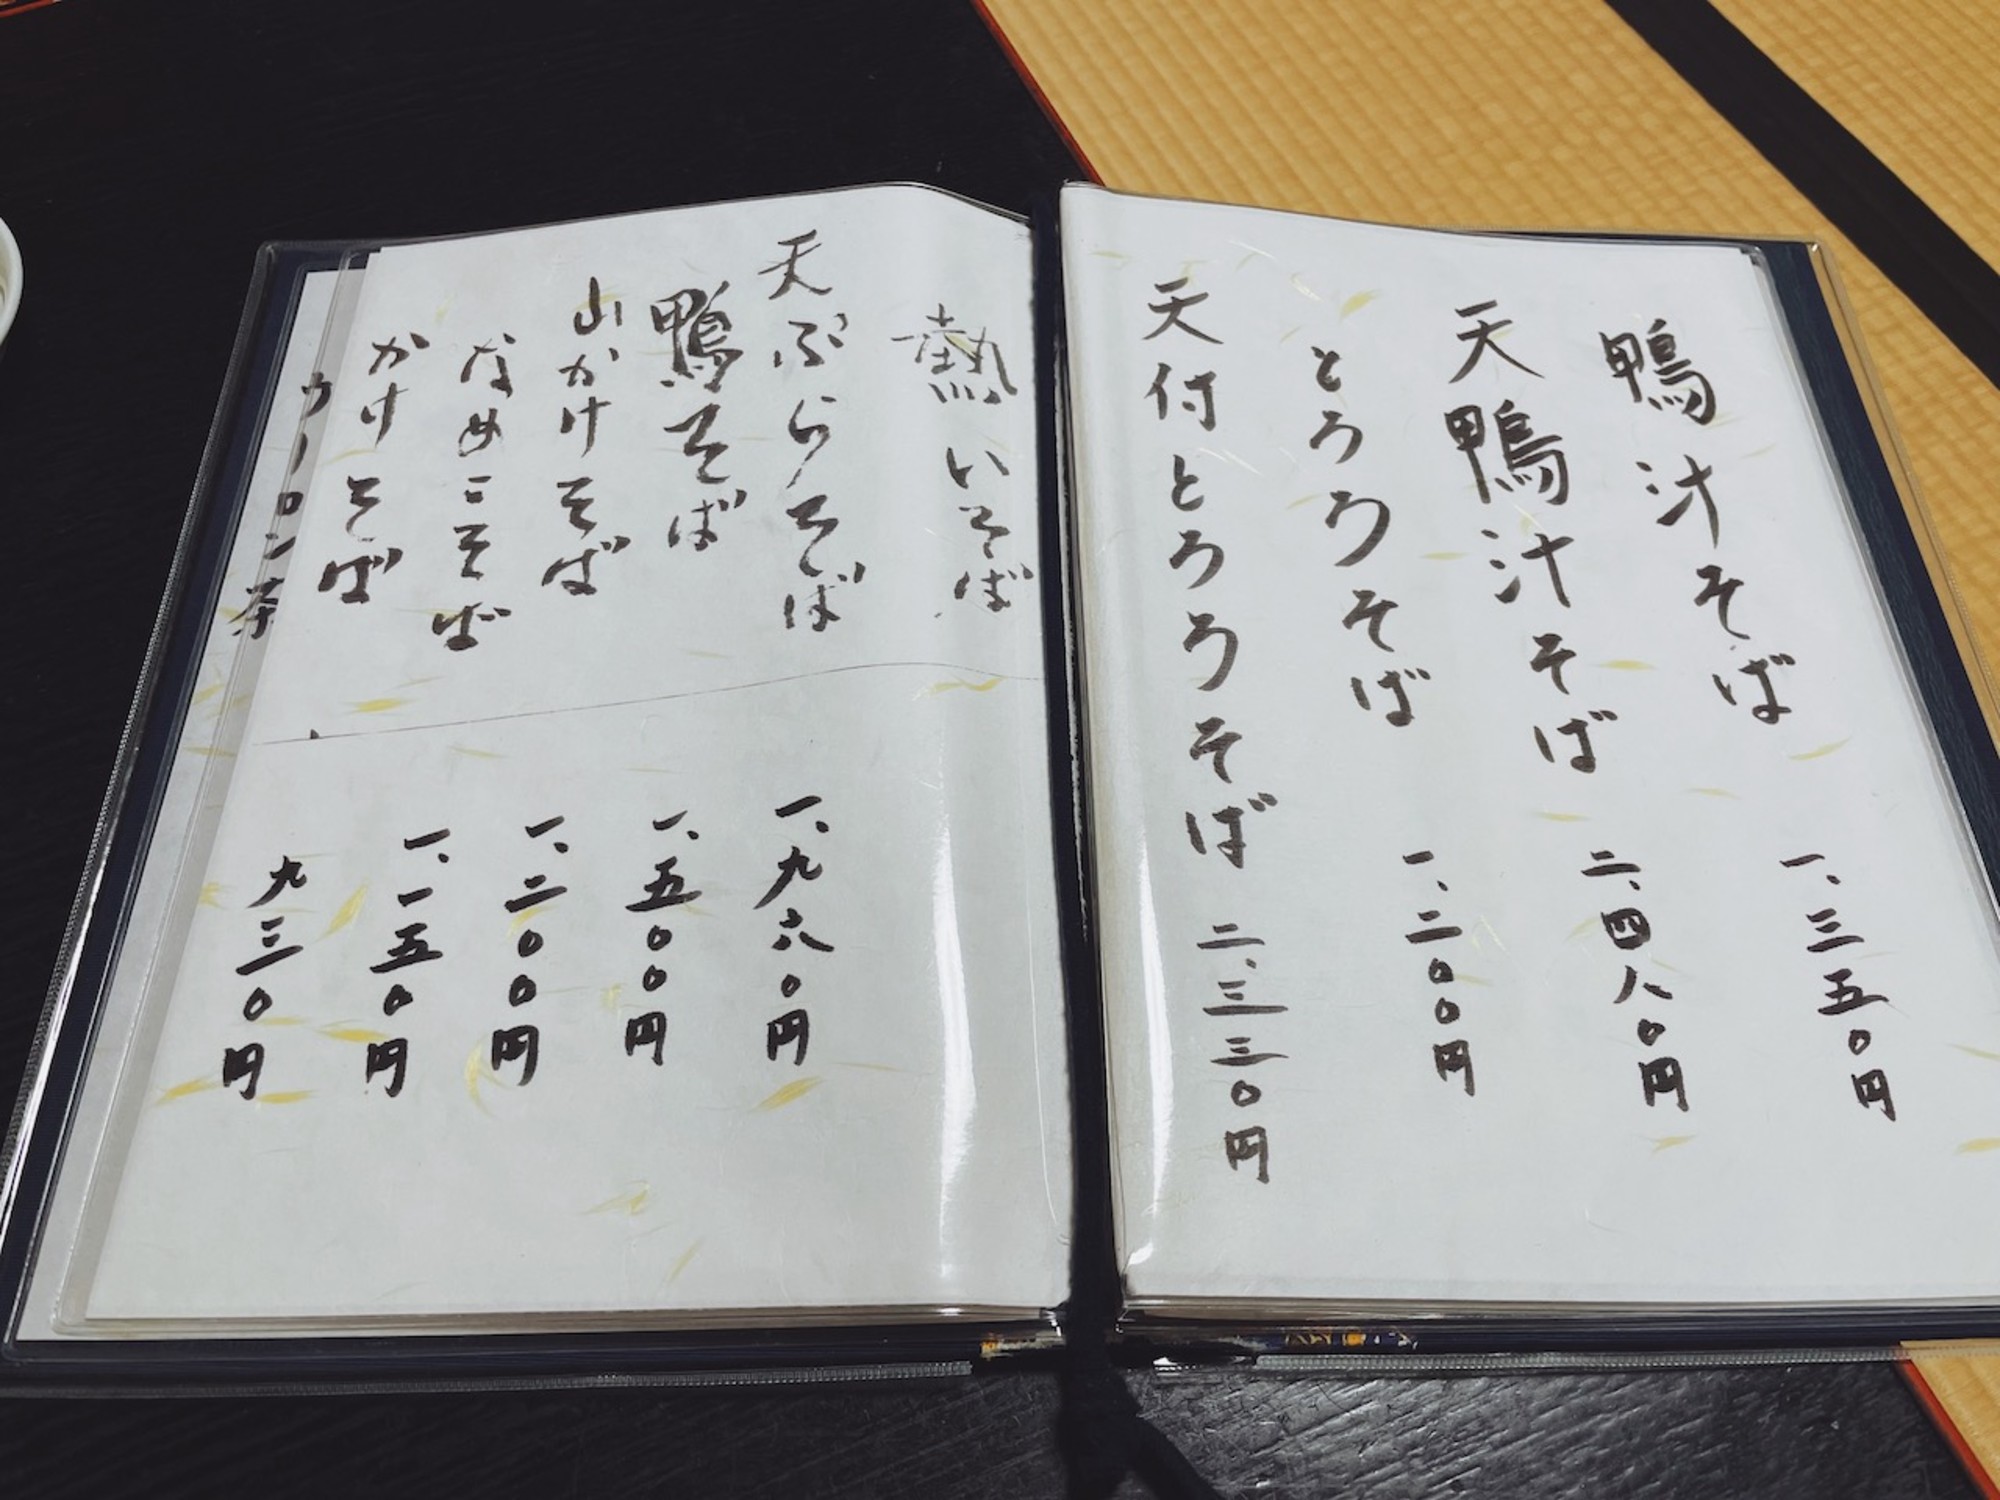 鴨汁そば 一、三五〇円
天鴨汁そば 二、四八〇円
とろろそば 一、二〇〇円
天付とろろそば 二、三三〇円
熱いそば
天ぷらそば 一、九六〇円
鴨そば 一、五〇〇円
山かけそば 一、二〇〇円
なめこそば 一、一五〇円
かけそば 九三〇円
ウーロン茶